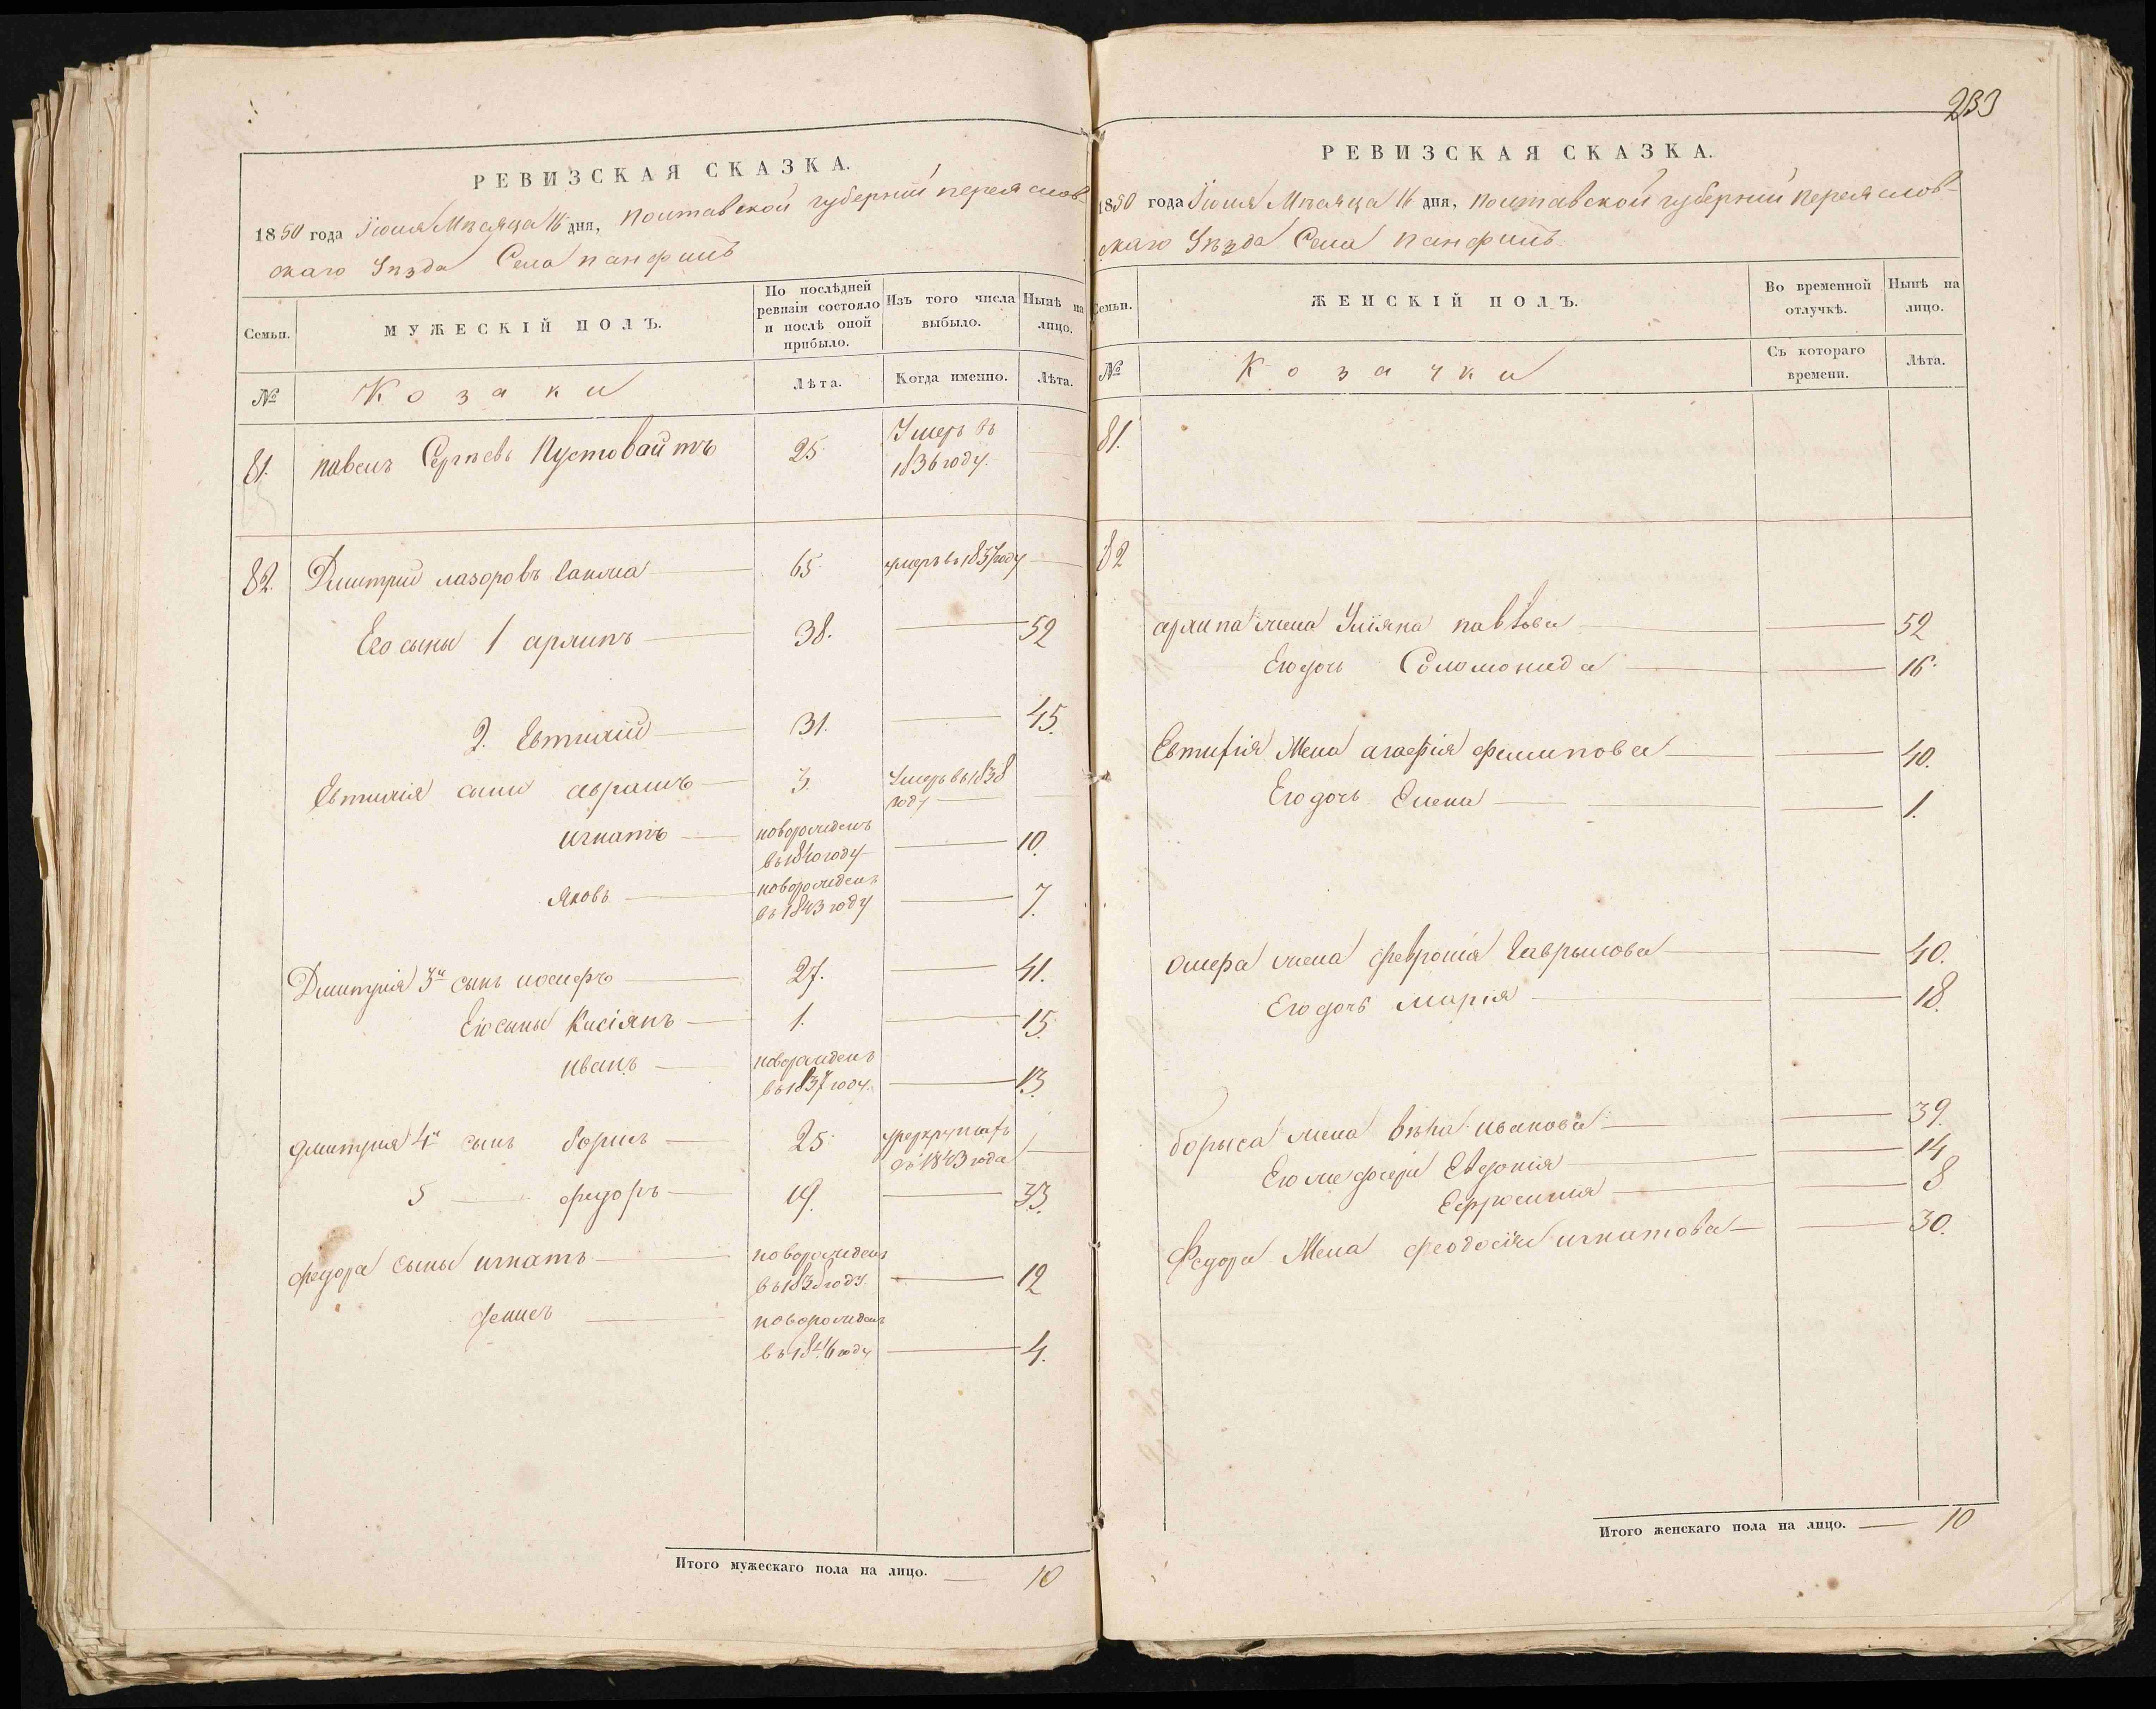 РЕВИЗСКАЯ СКАЗКА.
1850 года Іюня Мѣсяца 16 дня, Полтавской губерніи переяслов-
скаго Уѣзда Села панфилъ
Семьи.
МУЖЕСКІЙ ПОЛЪ.
По послѣдней ревизіи состояло и послѣ оной прибыло.
Изъ того числа выбыло.
Нынѣ на лицо.
№
Козаки
Лѣта.
Когда именно.
Лѣта.
81. павелъ Сергѣевъ Пустовайтъ 25 Умеръ въ
1836 году.
82. Дмитрий лазоровъ 65 умеръ в 1837 году —
Его сыны 1 — 38. — 52
2. Евтихій — 31. — 45.
Евтихія сыны аврамъ — 3. Умеръ въ 1838
году —
игнатъ — новорожденъ
въ 1840 году — 10.
яковъ — новорожденъ
въ 1843 году — 7.
Дмитрія 3й сынъ иосифъ — 27. — 41.
Его сыны Касіянъ — 1. — 15.
иванъ — новорожденъ
въ 1837 году. — 13.
дмитрия 4й сынъ борисъ — 25
съ 1843 года —
5 — федоръ — 19. — 33.
федора сыны игнатъ — новорожденъ
въ 1838 году. — 12
денисъ — новорожденъ
въ 1846 году — 4.
Итого мужескаго пола на лицо. — 10
233
РЕВИЗСКАЯ СКАЗКА.
1850 года Іюня Мѣсяца 16 дня, Полтавской губерніи Переяслов-
скаго Уѣзда Села панфилъ
Семьи.
ЖЕНСКІЙ ПОЛЪ.
Во временной отлучкѣ.
Нынѣ на лицо.
№
Козачки
Съ котораго времени.
Лѣта.
81.
82
жена Уліяна павлова — — 52
Его дочь Соломонида — — 16.
Евтихія Жена агафія филипова — — 40.
Его дочь Елена — — 1.
жена феврония Гаврилова — — 40.
Его дочь мария — — 18.
борыса жена иванова — — 39.
Его же дочери Евдокія — — 14
Ефросиния — — 8
Федора Жена феодосія игнатова — — 30.
Итого женскаго пола на лицо. — 10